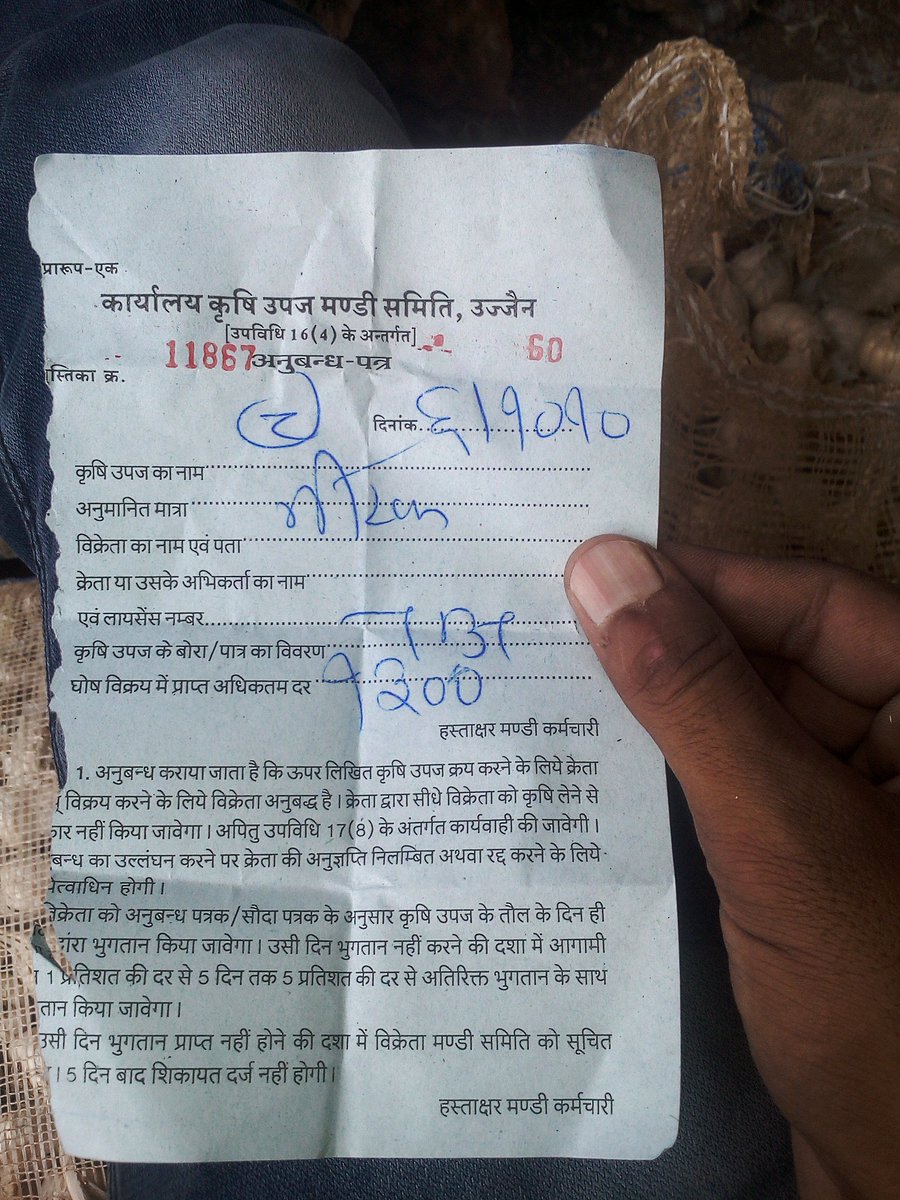 प्रारूप-एक
कार्यालय कृषि उपज मण्डी समिति, उज्जैन
[उपविधि 16(4) के अन्तर्गत]
11867 अनुबन्ध-पत्र 60
स्तिका क्र.
दिनांक
कृषि उपज का नाम
अनुमानित मात्रा
विक्रेता का नाम एवं पता
क्रेता या उसके अभिकर्ता का नाम
एवं लायसेंस नम्बर
कृषि उपज के बोरा/पात्र का विवरण
घोष विक्रय में प्राप्त अधिकतम दर १३००
हस्ताक्षर मण्डी कर्मचारी
1. अनुबन्ध कराया जाता है कि ऊपर लिखित कृषि उपज क्रय करने के लिये क्रेता
विक्रय करने के लिये विक्रेता अनुबद्ध है। क्रेता द्वारा सीधे विक्रेता को कृषि लेने से
कार नहीं किया जावेगा। अपितु उपविधि 17(8) के अंतर्गत कार्यवाही की जावेगी।
बन्ध का उल्लंघन करने पर क्रेता की अनुज्ञप्ति निलम्बित अथवा रद्द करने के लिये
त्वाधिन होगी।
विक्रेता को अनुबन्ध पत्रक/सौदा पत्रक के अनुसार कृषि उपज के तौल के दिन ही
भुगतान किया जावेगा। उसी दिन भुगतान नहीं करने की दशा में आगामी
1 प्रतिशत की दर से 5 दिन तक 5 प्रतिशत की दर से अतिरिक्त भुगतान के साथ
तान किया जावेगा।
उसी दिन भुगतान प्राप्त नहीं होने की दशा में विक्रेता मण्डी समिति को सूचित
। 5 दिन बाद शिकायत दर्ज नहीं होगी।
हस्ताक्षर मण्डी कर्मचारी